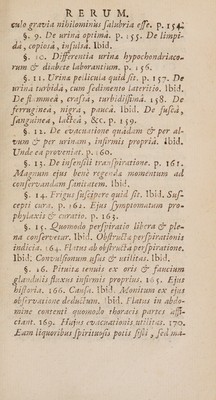 RERUM.
culo gravia nihilominus salubria esse. p. 154.
§. 9. De urinâ optimâ. p. 155. De limpi-
dâ, copiosâ, insulsâ. Ibid.
§. 10. Differentia urinæ hypochondriaco-
rum & diabete laborantium. p. 156.
§. 11. Urinæ pellicula quid sit. p. 157. De
urina turbidâ, cum sedimento lateritio. Ibid.
De flammeâ, crassâ, turbidissimâ. 158. De
ferrugineâ, nigrâ, pauca. Ibid. De fuscâ,
sanguinea, lacteâ, &c. p. 159.
§. 12. De evacuatione quâdam & per al-
vum & per urinam, infirmis propriâ. Ibid.
Unde ea proveniat. p. 160.
§. 13. De insensili transpiratione. p. 161.
Magnum ejus bene regenda momentum ad
conservandam sanitatem. Ibid.
§. 14. Frigus suscipere quid sit. Ibid. Sus-
cepti cura. p. 162. Ejus symptomatum pro-
phylaxis & curatio. p. 163.
§. 15. Quomodo perspiratio libera & ple-
na conservetur. Ibid. Obstructæ perspirationis
indicia. 164. Flatus ab obstructa perspiratione.
Ibid. Convulsionum usus & utilitas. Ibid.
§. 16. Pituita tenuis ex oris & faucium
glandulis fluxus infirmis proprius. 165. Ejus
historia. 166. Causa. Ibid. Monitum ex ejus
observatione deducitum. Ibid. Flatus in abdo-
mine contenti quomodo thoracis partes affi-
ciant. 169. Hujus evacuationis utilitas. 170.
Eam liquoribus spirituosis potis sisti, sed ma-